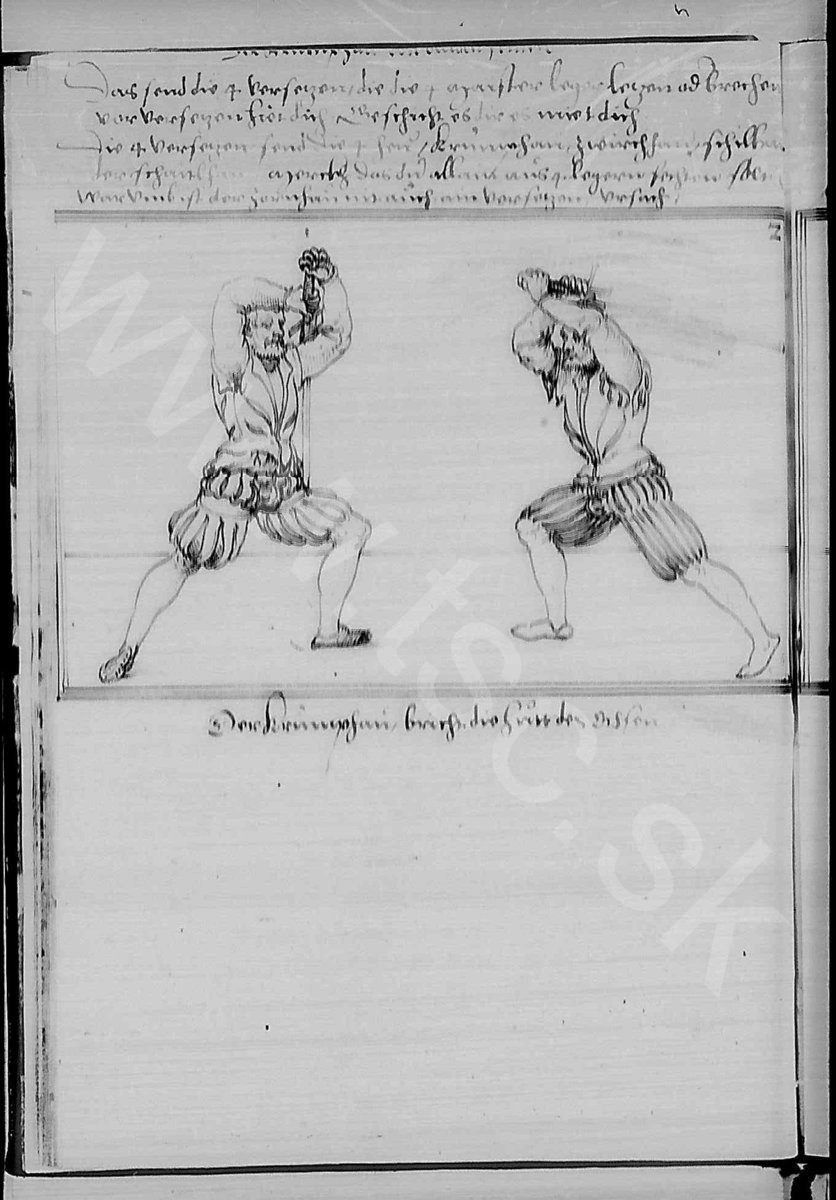 Das send die 4 versetzen, die die 4 leger letzen od brechen
vor versetzen hiet dich Geschicht es dir es miet dich
Die 4 versetzen send die 4 heu, Krumphau, zwirchhau, schilha
der schaitlhau merckh das du allain aus 4 legern fechten
Warumb ist der zornhau nit auch ain versetzen ursach
2
Der Krumphau, bricht die hutt des Ochsen
www.tsc.sk